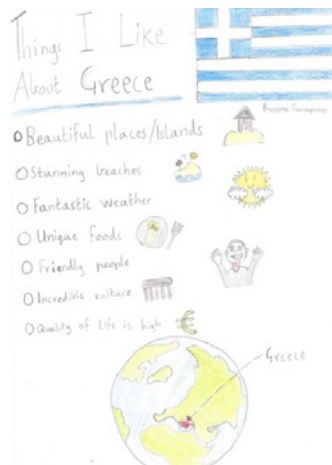 Things I Like
About Greece
O Beautiful places/Islands
O Stunning beaches
O Fantastic weather
O Unique Foods
O Friendly people
O Incredible culture
O Quality of life is high
Greece